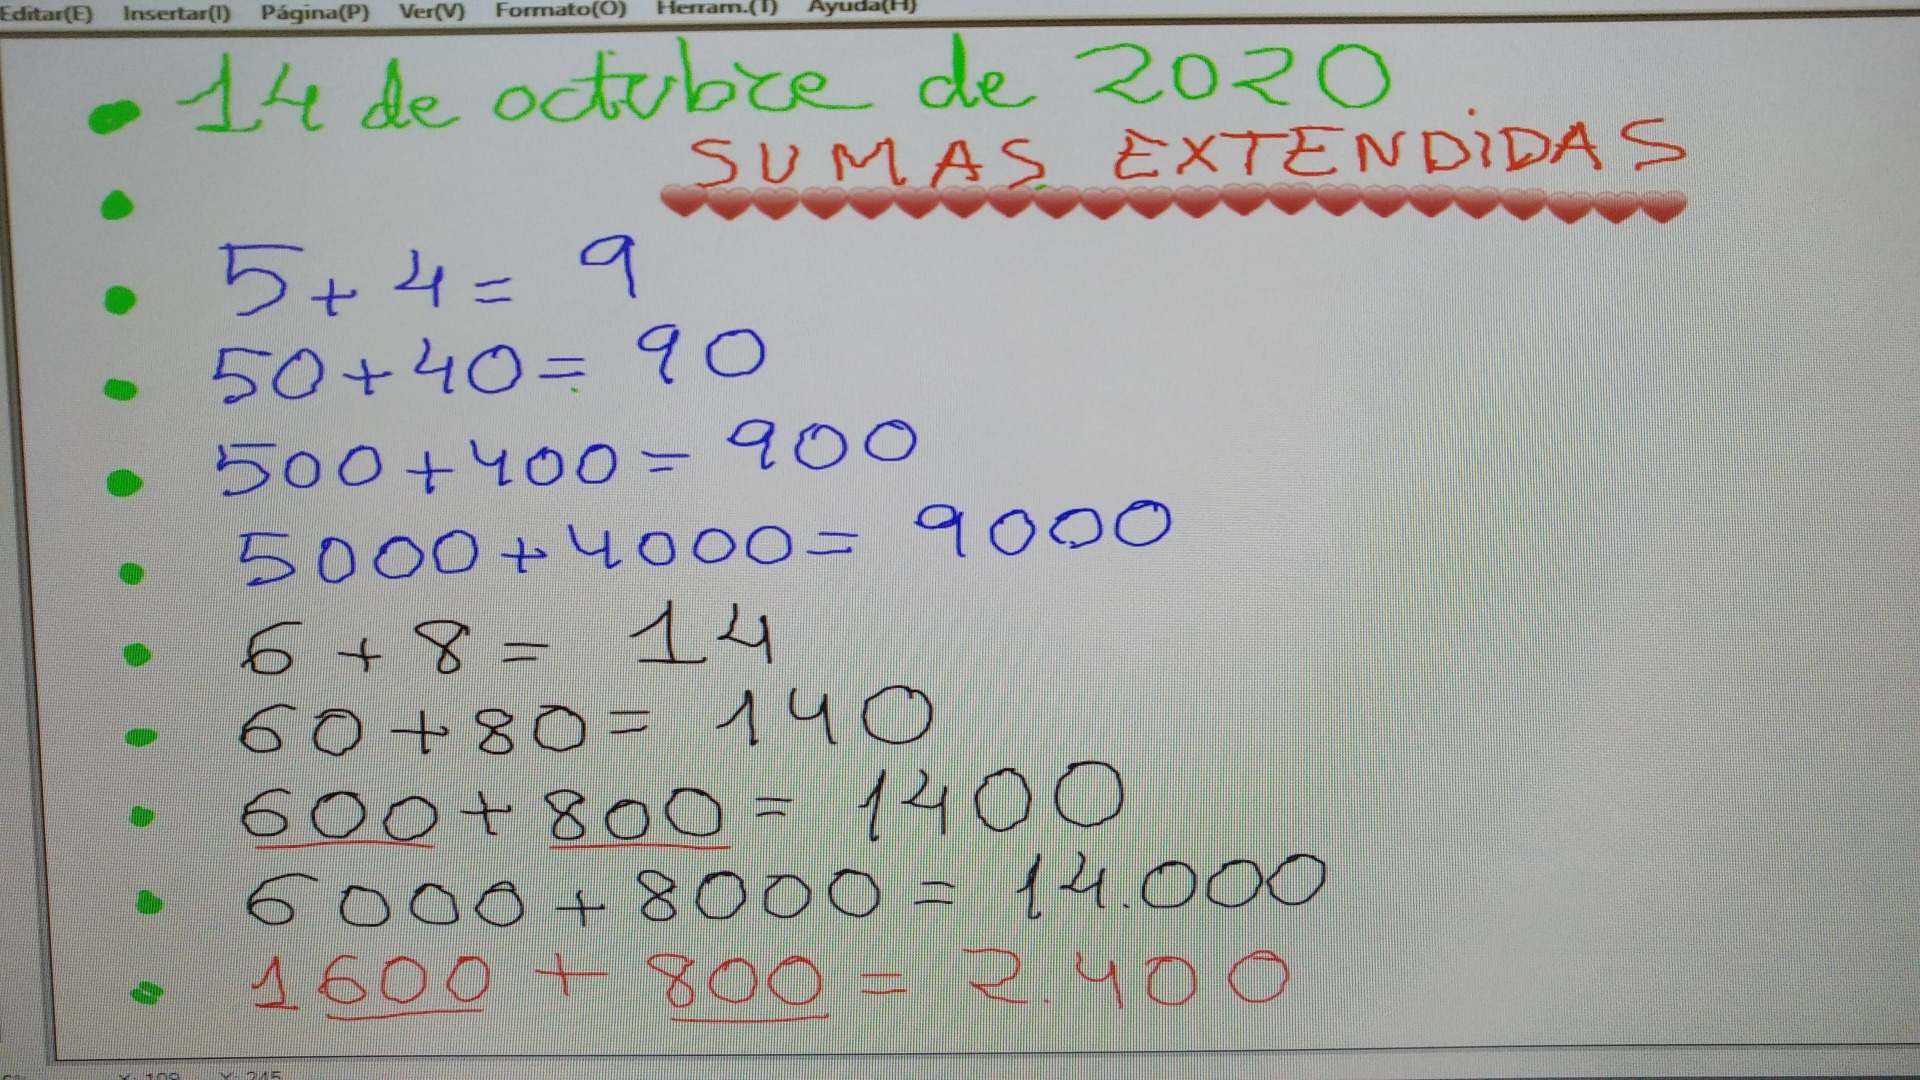 Editar(E) Insertar(I) Página(P) Ver(V) Formato(O) Herram.(T) Ayuda(H)
14 de octubre de 2020
SUMAS EXTENDIDAS
5+4= 9
50+40= 90
500+400= 900
5000+4000= 9000
6+8= 14
60+80= 140
600+800= 1400
6000+8000= 14.000
1600+800= 2.400